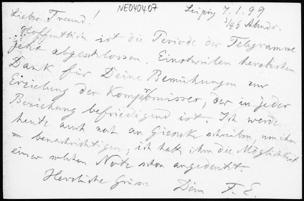 Lieber Freund! NE040407 Leipzig 7.1.99
Hoffentlich ist die Periode der Telegramme
jetzt abgeschlossen. Einstweilen herzlichsten
Dank für Deine Bemühungen zur
Erzielung der Kompromisses, der in jeder
Beziehung befriedigend ist. Ich werde
heute auch noch an schreiben, um ihn
zu benachrichtigen; ich hatte ihm die Möglichkeit
einer solchen Note schon angedeutet.
Herzliche Grüsse Dein F. E.